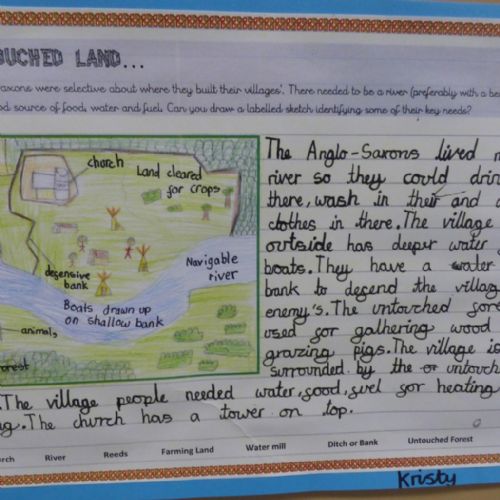 OUCHED LAND...
axons were selective about where they built their villages'. There needed to be a river (preferably with a be
d source of food, water and fuel. Can you draw a labelled sketch identifying some of their key needs?
church
Land cleared
for crops
defensive
bank
Navigable
river
Boats drawn up
on shallow bank
animals
orest
The Anglo-Saxons lived n
river so they could drin
there, wash in their and
clothes in there. The village
outside has deeper water
boats. They have a water
bank to defend the villag
enemy's. The untouched for
used for gathering wood
grazing pigs. The village is
surrounded by the or untouch
. The village people needed water, food, fuel for heating
g. The church has a tower on top.
rch River Reeds Farming Land Water mill Ditch or Bank Untouched Forest
Kristy